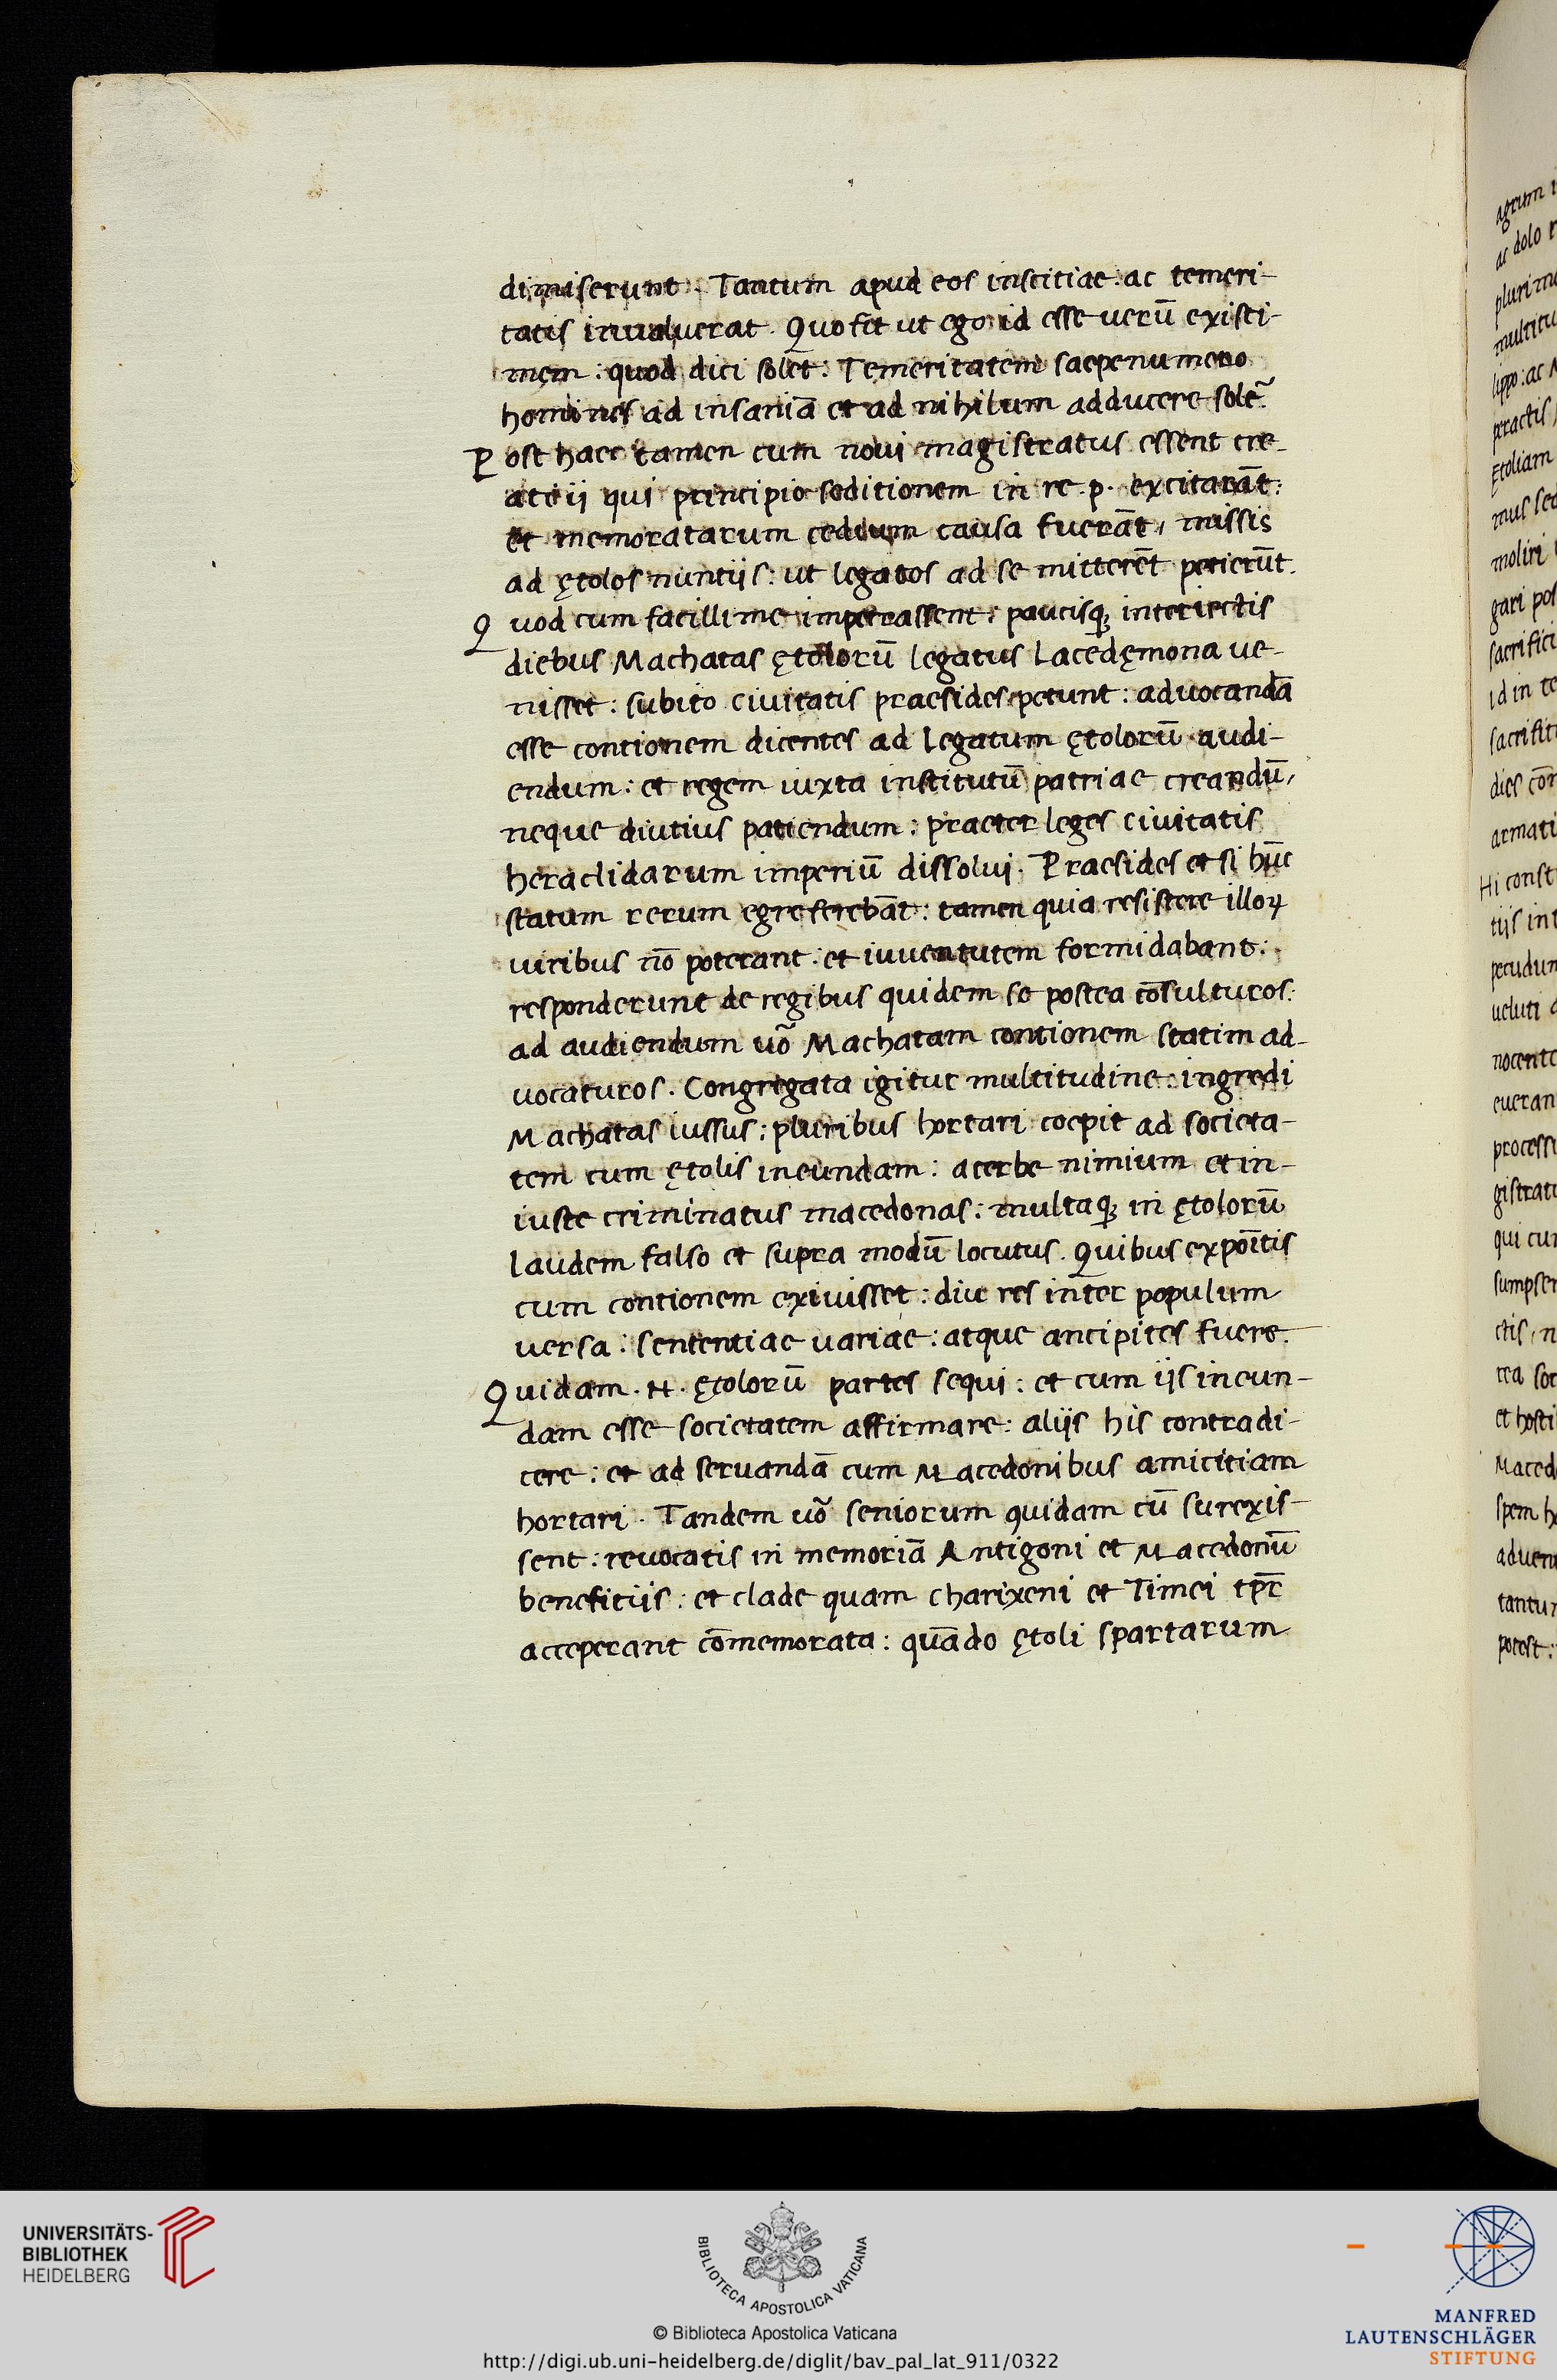 dimiserunt. Tantum apud eos inscitiae: ac temeri-
tatis inualuerat. Quo fit ut ego id esse uerū existi-
mem: quod dici solet: Temeritatem saepenumero
homines ad insaniā et ad nihilum adducere solē̃.
Post haec tamen cum noui magistratus essent cre-
ati ii qui principio seditionem in re. p. excitarāt:
et memoratarum cedium causa fuerāt, missis
ad ętolos nuntijs: ut legatos ad se mitterēt petierūt.
Quod cum facillime impetrassent: paucisq; interiectis
diebus Machatas ętolorū legatus Lacedęmona ue-
nisset: subito ciuitatis praesides petunt: aduocandā
esse contionem dicentes ad legatum ętolorū audi-
endum: et regem iuxta institutū patriae creandū,
neque diutius patiendum: praeter leges ciuitatis
heraclidarum imperiū dissolui. Praesides et si hūc
statum rerum egre ferebāt: tamen quia resistere illoꝝ
uiribus nō poterant: et iuuentutem formidabant:
responderunt de regibus quidem se postea cōsulturos:
ad audiendum uõ Machatam contionem statim ad-
uocaturos. Congregata igitur multitudine: ingredi
Machatas iussus: pluribus hortari coepit ad societa-
tem cum ętolis ineundam: acerbe nimium et in-
iuste criminatus macedonas: multaq; in ętolorū
laudem falso et supra modū locutus. Quibus expoītis
cum contionem exiuisset: diu res inter populum
uersa: sententiae uariae: atque ancipites fuere.
Quidam .N. ętolorū partes sequi: et cum ijs ineun-
dam esse societatem affirmare: alijs his contradi-
cere: et ad seruandā cum Macedonibus amicitiam
hortari. Tandem uõ seniorum quidam cū surexis-
sent: reuocatis in memoriā Antigoni et Macedonū
benefitijs: et clade quam charixeni et Timei tpr̄
acceperant cōmemorata: quādo ętoli spartarum
UNIVERSITÄTS-
BIBLIOTHEK
HEIDELBERG
BIBLIOTECA APOSTOLICA VATICANA
© Biblioteca Apostolica Vaticana
http://digi.ub.uni-heidelberg.de/diglit/bav_pal_lat_911/0322
MANFRED
LAUTENSCHLÄGER
STIFTUNG